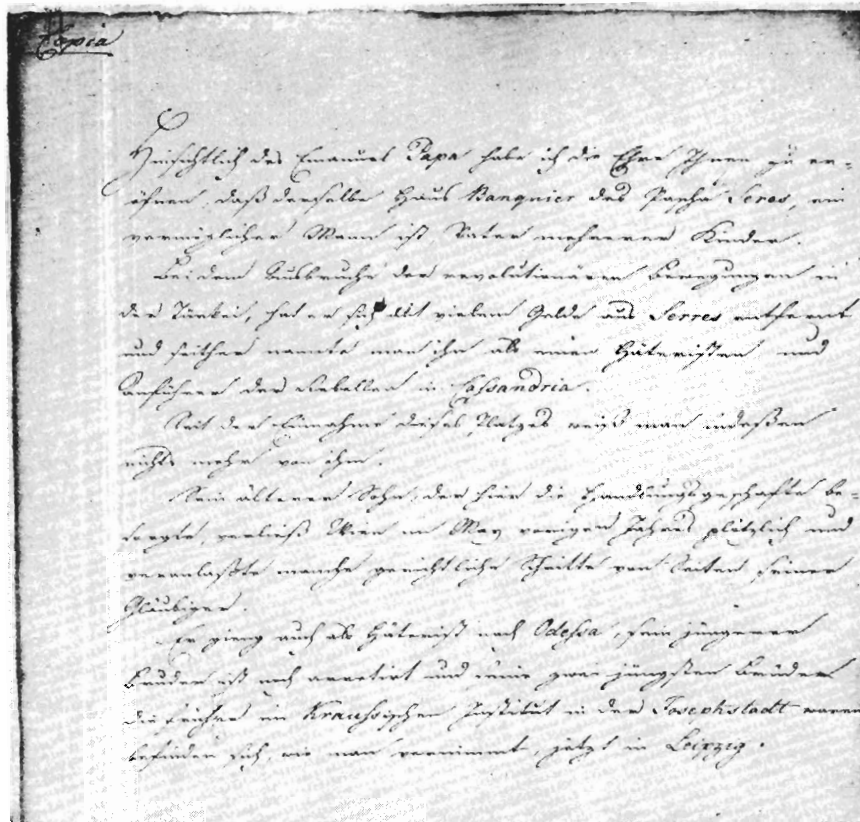 Copia
Hinsichtlich des Emanuel Papa habe ich die Ehre Ihnen zu er-
öfnen, daß derselbe Haus Banquier des Pascha Seres, ein
vermöglicher Mann ist Vater mehrerer Kinder.
Bei dem Ausbruche der revolutionären Bewegungen in
der Türkei, hat er sich mit vielem Gelde aus Serres entfernt
und seither nannte man ihn als einen Häteristen und
Anführer der Rebellen in Cassandria.
Seit der Einnahme dieses Platzes weiß man indeßen
nichts mehr von ihm.
Sein älterer Sohn, der hier die Handlungsgeschäfte be-
sorgte, verließ Wien im May vorigen Jahres plötzlich und
veranlaßte manche gerichtliche Schritte von Seiten seiner
Gläubiger.
Er gieng auch als Häterist nach Odessa, sein jüngerer
Bruder ist noch arretirt und seine zwei jüngsten Brüder
die früher im Kraussischen Institut in der Josephstadt waren
befinden sich, wie man vernimmt, jetzt in Leipzig.